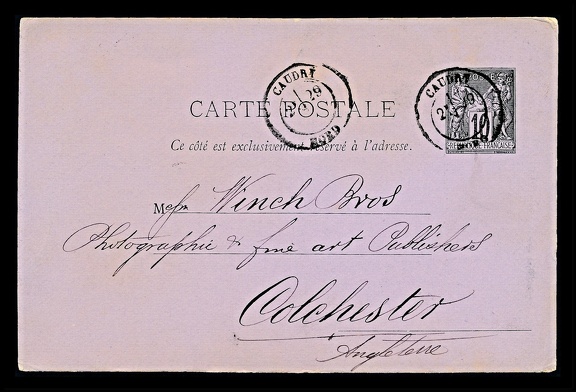 CAUDRY
29
NORD
CAUDRY
POSTE
10
RÉPUBLIQUE FRANÇAISE
CARTE POSTALE
Ce côté est exclusivement réservé à l'adresse.
Messrs Winch Bros
Photographic & fine art Publishers
Colchester
Angleterre